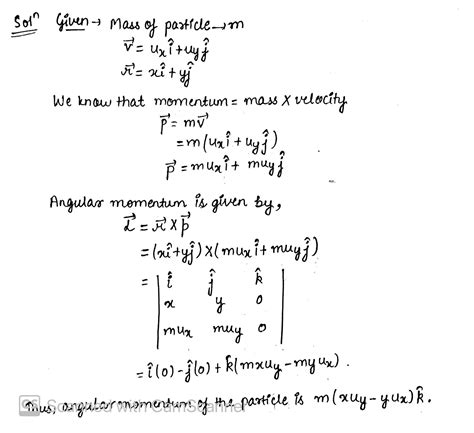 Solⁿ Given → Mass of particle → m
v⃗ = uₓî + u_yĵ
r⃗ = xî + yĵ
We know that momentum = mass X velocity
p⃗ = mv⃗
= m(uₓî + u_yĵ)
p⃗ = muₓî + mu_yĵ
Angular momentum is given by,
L⃗ = r⃗ X p⃗
= (xî + yĵ) X (muₓî + mu_yĵ)
= | î ĵ k̂ |
| x y 0 |
| muₓ mu_y 0 |
= î(0) - ĵ(0) + k̂(mxu_y - myuₓ).
Thus, angular momentum of the particle is m(xu_y - yuₓ)k̂.
Scanned with CamScanner